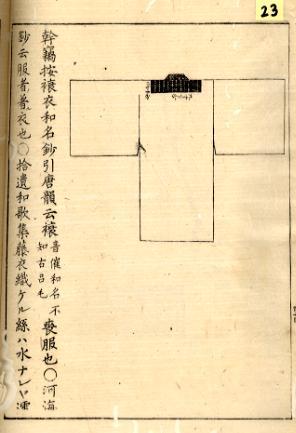 23
幹齋按縗衣和名鈔引唐韻云縗音催和名不知古呂毛喪服也〇河海
鈔云服者着衣也〇拾遺和歌集藤衣織ケル絲ハ水ナレヤ濡